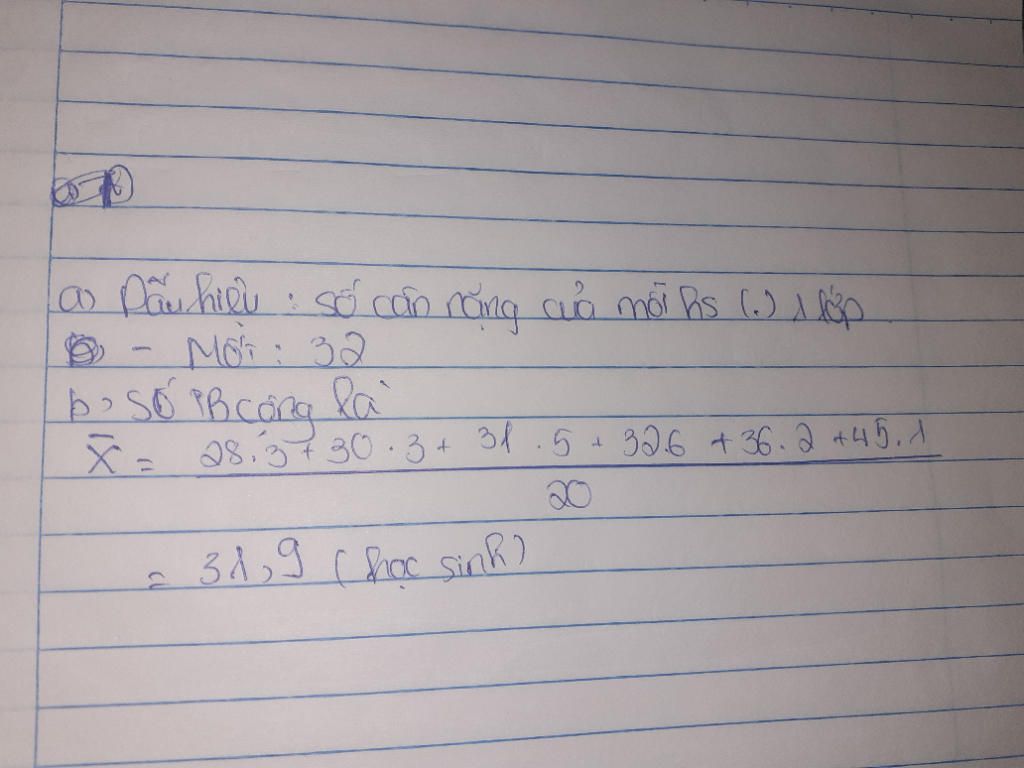 a) Dấu hiệu : số cân nặng của mỗi hs (.) 1 lớp
- Mốt : 32
b, Số TB cộng là
X̄ = 28.3 + 30 . 3 + 31 . 5 + 32.6 + 36.2 + 45.1
20
= 31,9 (học sinh)